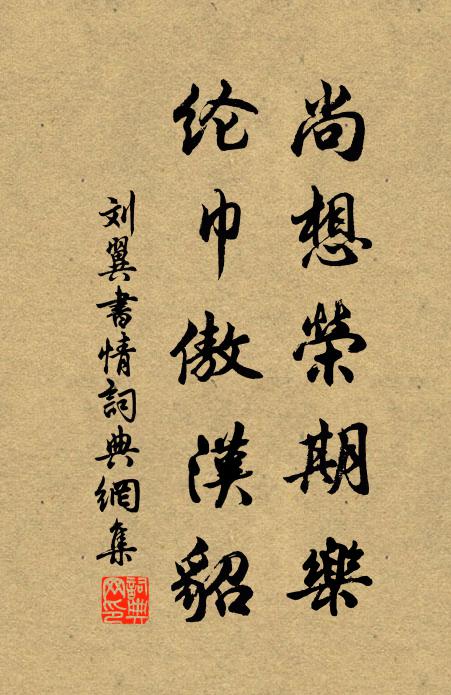 尚想榮期樂
纶巾傲漢貂
刘翼書情詞典網集
詞典网印